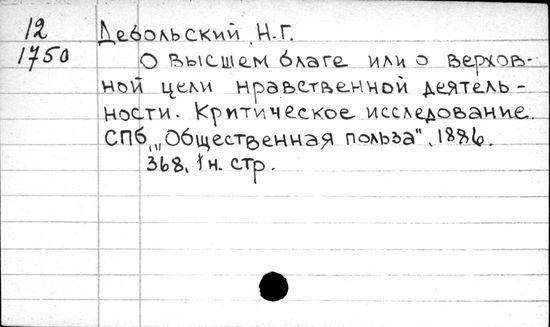 12 Дебольский, Н.Г.
1750 О высшем благе или о верхов-
ной цели нравственной деятель-
ности. Критическое исследование.
СПб, "Общественная польза", 1886.
368, 1 н. стр.